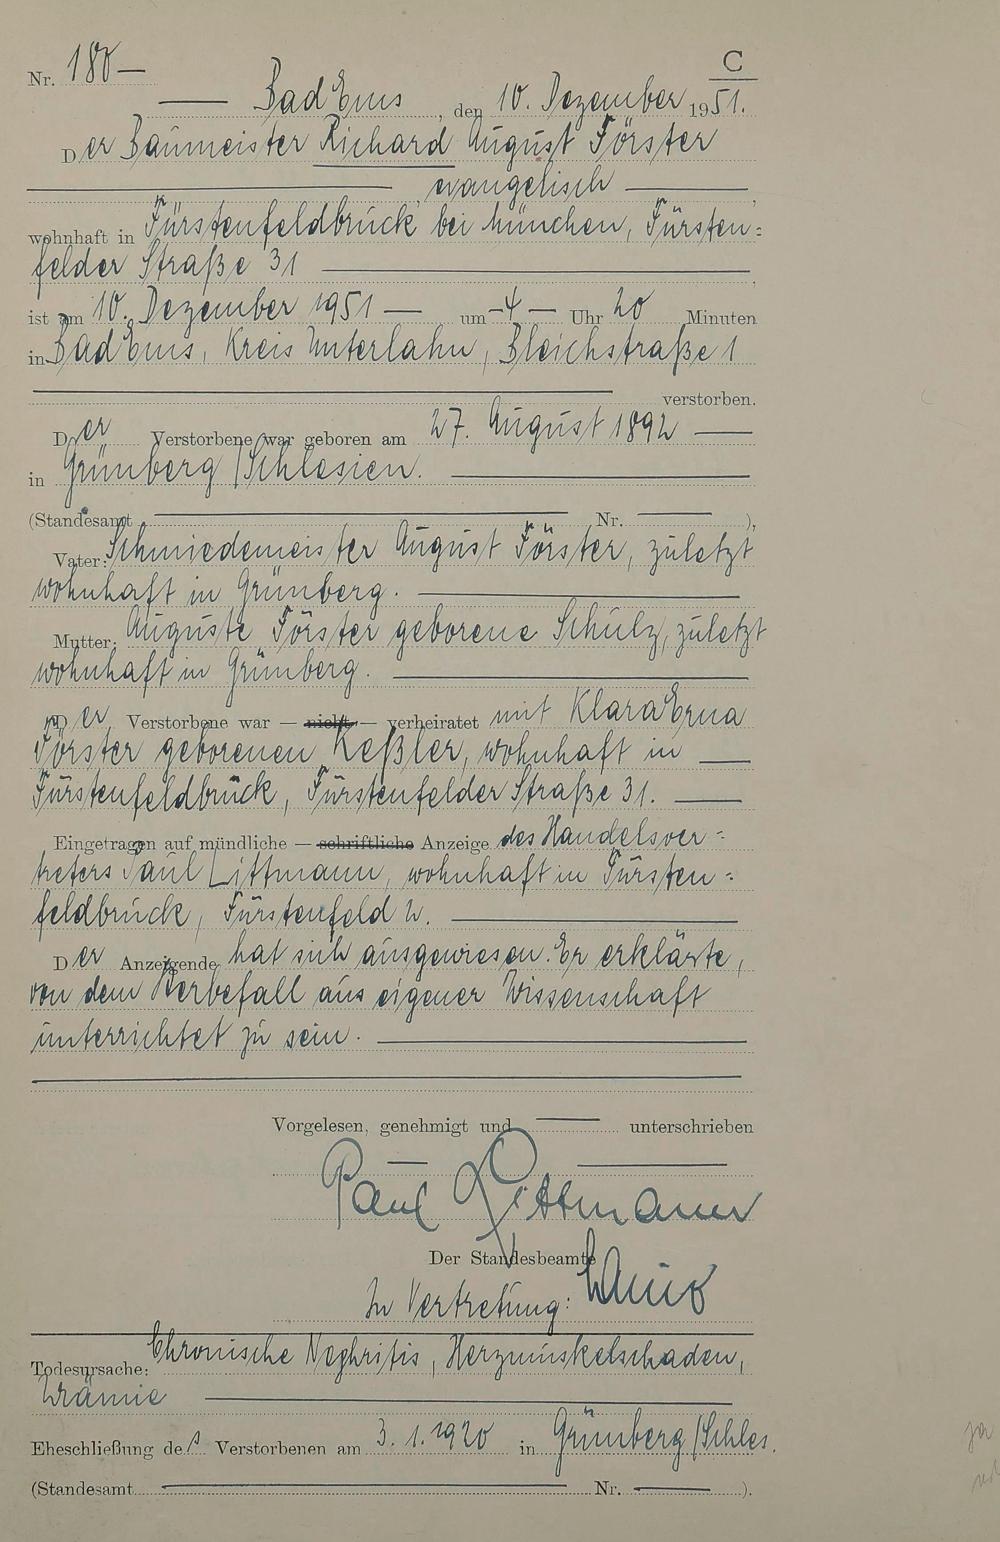 C
Nr. 180
Bad Ems, den 10. Dezember 1951.
Der Baumeister Richard August Förster
evangelisch,
wohnhaft in Fürstenfeldbruck bei München, Fürsten=
felder Straße 31,
ist am 10. Dezember 1951 um 4 Uhr 20 Minuten
in Bad Ems, Kreis Unterlahn, Bleichstraße 1
verstorben.
Der Verstorbene war geboren am 27. August 1892
in Grünberg/Schlesien.
(Standesamt Nr. ),
Vater: Schmiedemeister August Förster, zuletzt
wohnhaft in Grünberg.
Mutter: Auguste Förster geborene Schulz, zuletzt
wohnhaft in Grünberg.
Der Verstorbene war — nicht — verheiratet mit Klara Erna
Förster geborenen Keßler, wohnhaft in
Fürstenfeldbruck, Fürstenfelder Straße 31.
Eingetragen auf mündliche — schriftliche Anzeige des Handelsver=
treters Paul Littmann, wohnhaft in Fürsten=
feldbruck, Fürstenfeld 2.
Der Anzeigende hat sich ausgewiesen. Er erklärte,
von dem Sterbefall aus eigener Wissenschaft
unterrichtet zu sein.
Vorgelesen, genehmigt und unterschrieben
Paul Littmann
Der Standesbeamte
In Vertretung:
Todesursache: Chronische Nephritis, Herzmuskelschaden,
Urämie
Eheschließung des Verstorbenen am 3. 1. 1920 in Grünberg/Schles.
(Standesamt Nr. ).